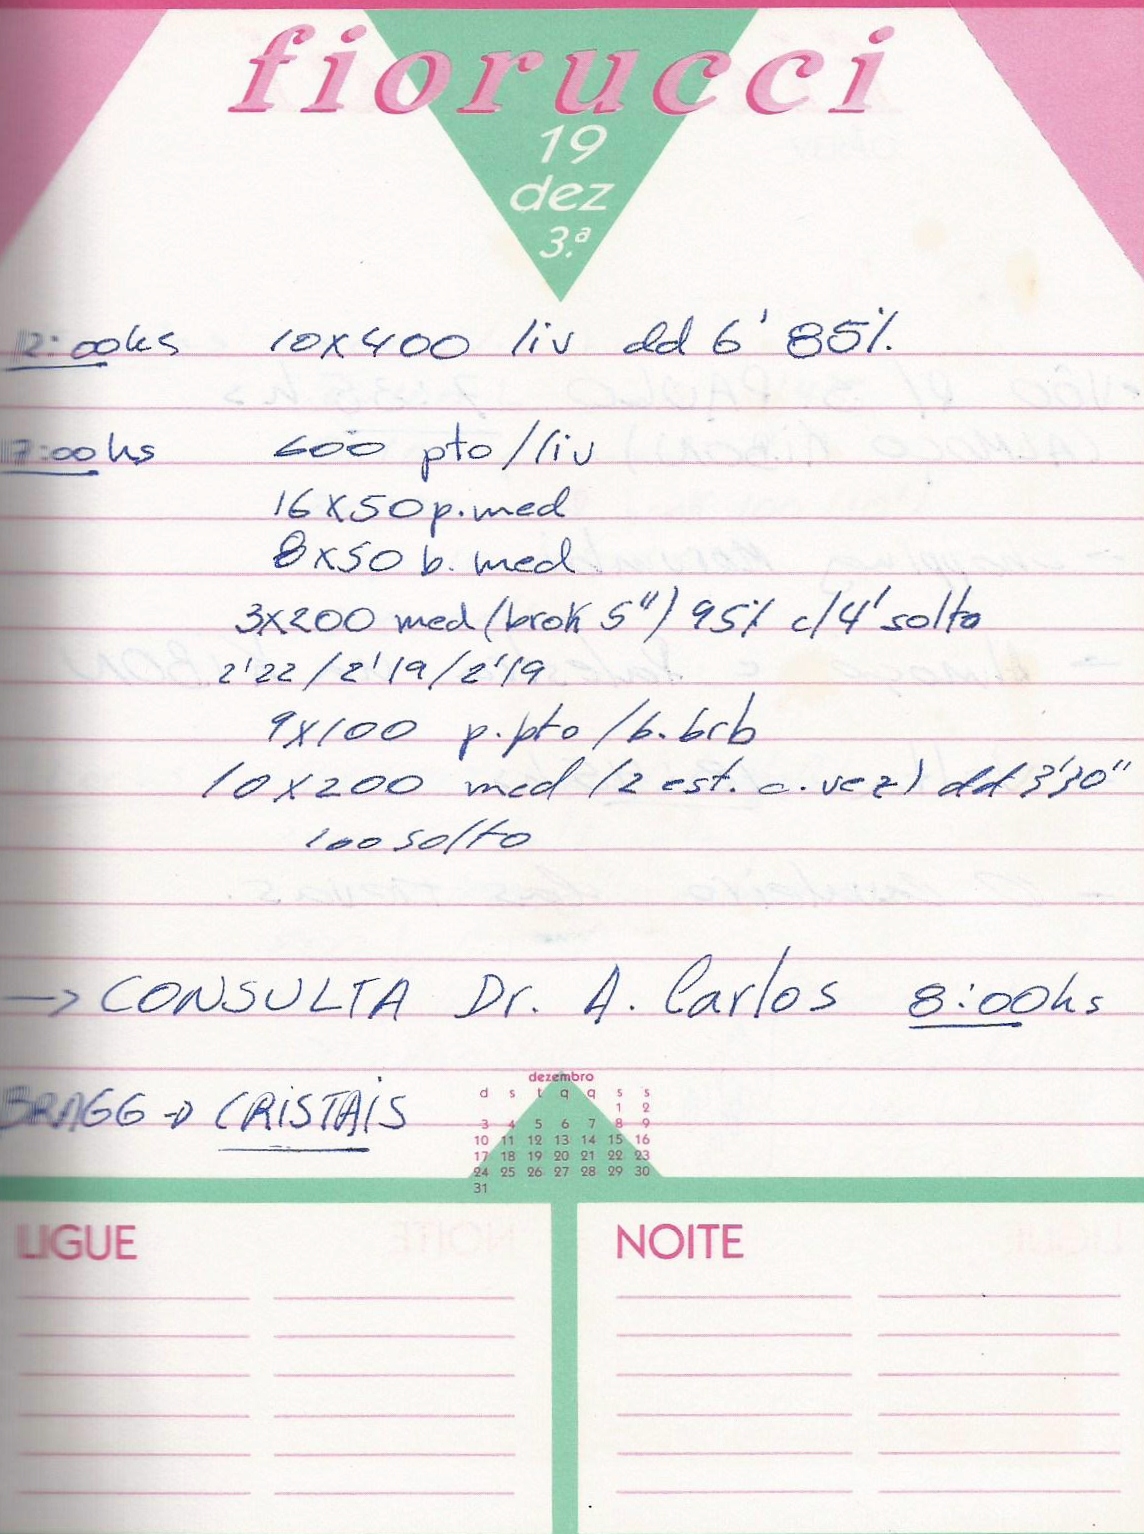 fiorucci
19
dez
3.ª
12:00hs 10x400 liv dd 6' 85%
17:00hs 600 pto/liv
16x50 p.med
8x50 b. med
3x200 med (brok 5") 95% c/4' solto
2'22 / 2'19 / 2'19
9x100 p.pto/b.brb
10x200 med (2 est. c. vez) dd 3'30"
100 solto
→ CONSULTA Dr. A. Carlos 8:00hs
BRAGG → CRISTAIS
dezembro
d s t q q s s
1 2
3 4 5 6 7 8 9
10 11 12 13 14 15 16
17 18 19 20 21 22 23
24 25 26 27 28 29 30
31
LIGUE NOITE